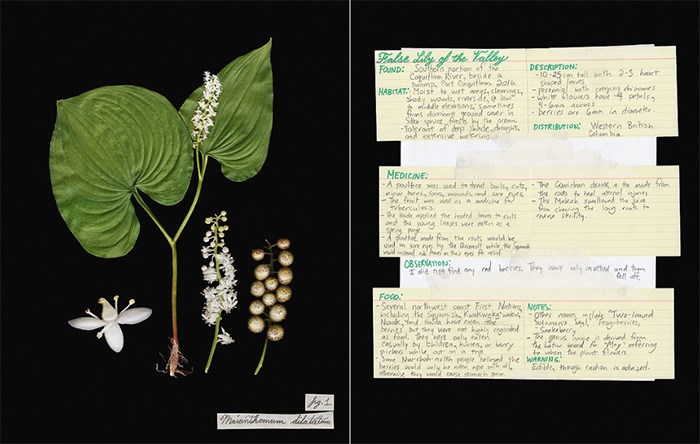 fig. 1
Maianthemum dilatatum
False Lily of the Valley
FOUND: Southern portion of the
Coquitlam River, beside a
swamp, Port Coquitlam 2016.
HABITAT: Moist to wet areas, clearings,
shady woods, riverside, @ low
to middle elevations, sometimes
forms dominant ground cover in
Sitka-spruce forests by the ocean
- Tolerant of deep shade, drought,
and extensive watering.
DESCRIPTION:
- 10-25cm tall with 2-3 heart
shaped leaves
- perennial with creeping rhizomes
- white flowers have 4 petals,
4-6mm across
- berries are 6mm in diameter.
DISTRIBUTION: Western British
Columbia
MEDICINE:
- A poultice was used to treat boils, cuts,
minor burns, sores, wounds, and sore eyes.
- The fruit was used as a medicine for
tuberculosis.
- The Haida applied the heated leaves to cuts
and the young leaves were eaten as a
spring
- A poultice made from the roots would be
used on sore eyes by the Quinault, while the
would instead rub on their eyes for relief.
- The Cowichan drank a tea made from
the roots to heal internal injuries.
- The Makah swallowed the juice
from chewing the long roots to
reverse sterility.
OBSERVATION:
I did not find any red berries. They were only mottled and then
fell off.
FOOD:
- Several northwest coast First Nations,
including the Squamish, Kwakwaka'wakw,
Nuxalk, and Haida have eaten the
berries but they were not highly regarded
as food. They were only eaten
casually by children, hunters, or berry
pickers while out on a trip.
- Some Nuu-chah-nulth people believed the
berries could only be eaten ripe with oil,
otherwise they would cause stomach pain.
NOTES:
- Other names include "Two-leaved
Solomon's Seal, Frog-berries,
Snakeberry
- The genus name is derived from
the Latin word for "May" referring
to when the plant flowers.
WARNING:
Edible, though caution is advised.